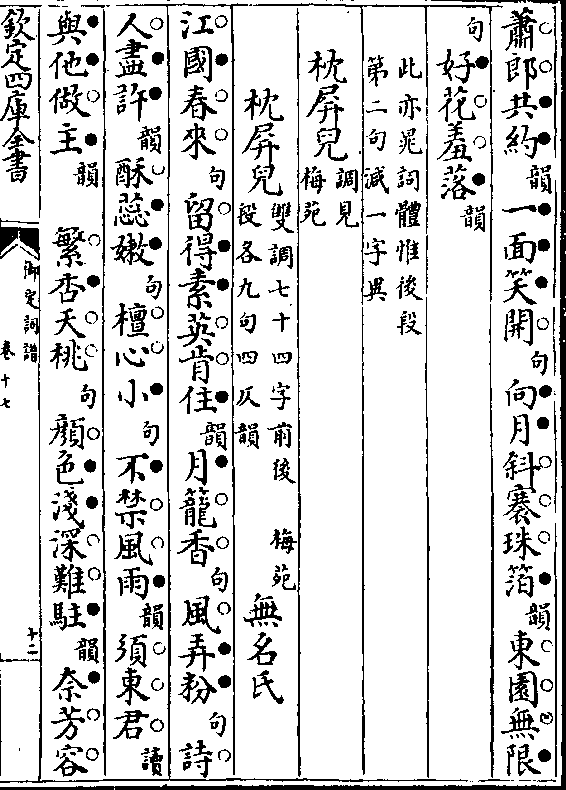 蕭郎共約韻一面笑開句向月斜褰珠箔韻東園無限
句好花羞落韻
此亦晁詞體惟後段
第二句減一字異
枕屏兒調見
梅苑
枕屏兒雙調七十四字前後
段各九句四仄韻
梅苑無名氏
江國春來句留得素英肯住韻月籠香句風弄粉句詩
人盡許韻酥蕊嫩句檀心小句不禁風雨韻須東君讀
與他做主韻
繁杏夭桃句顏色淺深難駐韻奈芳容
欽定四庫全書
御定詞譜
卷十七
十二